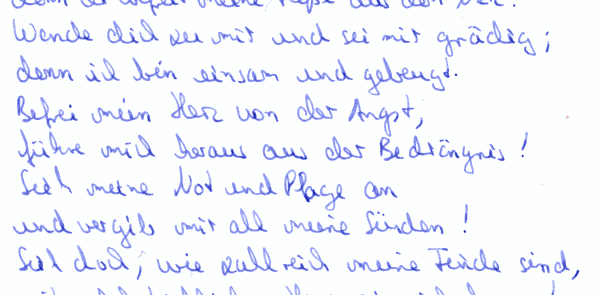 denn er meine Füße aus dem Netz.
Wende dich zu mir und sei mir gnädig;
denn ich bin einsam und gebeugt.
Befrei mein Herz von der Angst,
führe mich heraus aus der Bedrängnis!
Sieh meine Not und Plage an
und vergib mir all meine Sünden!
Sieh doch, wie zahlreich meine Feinde sind,